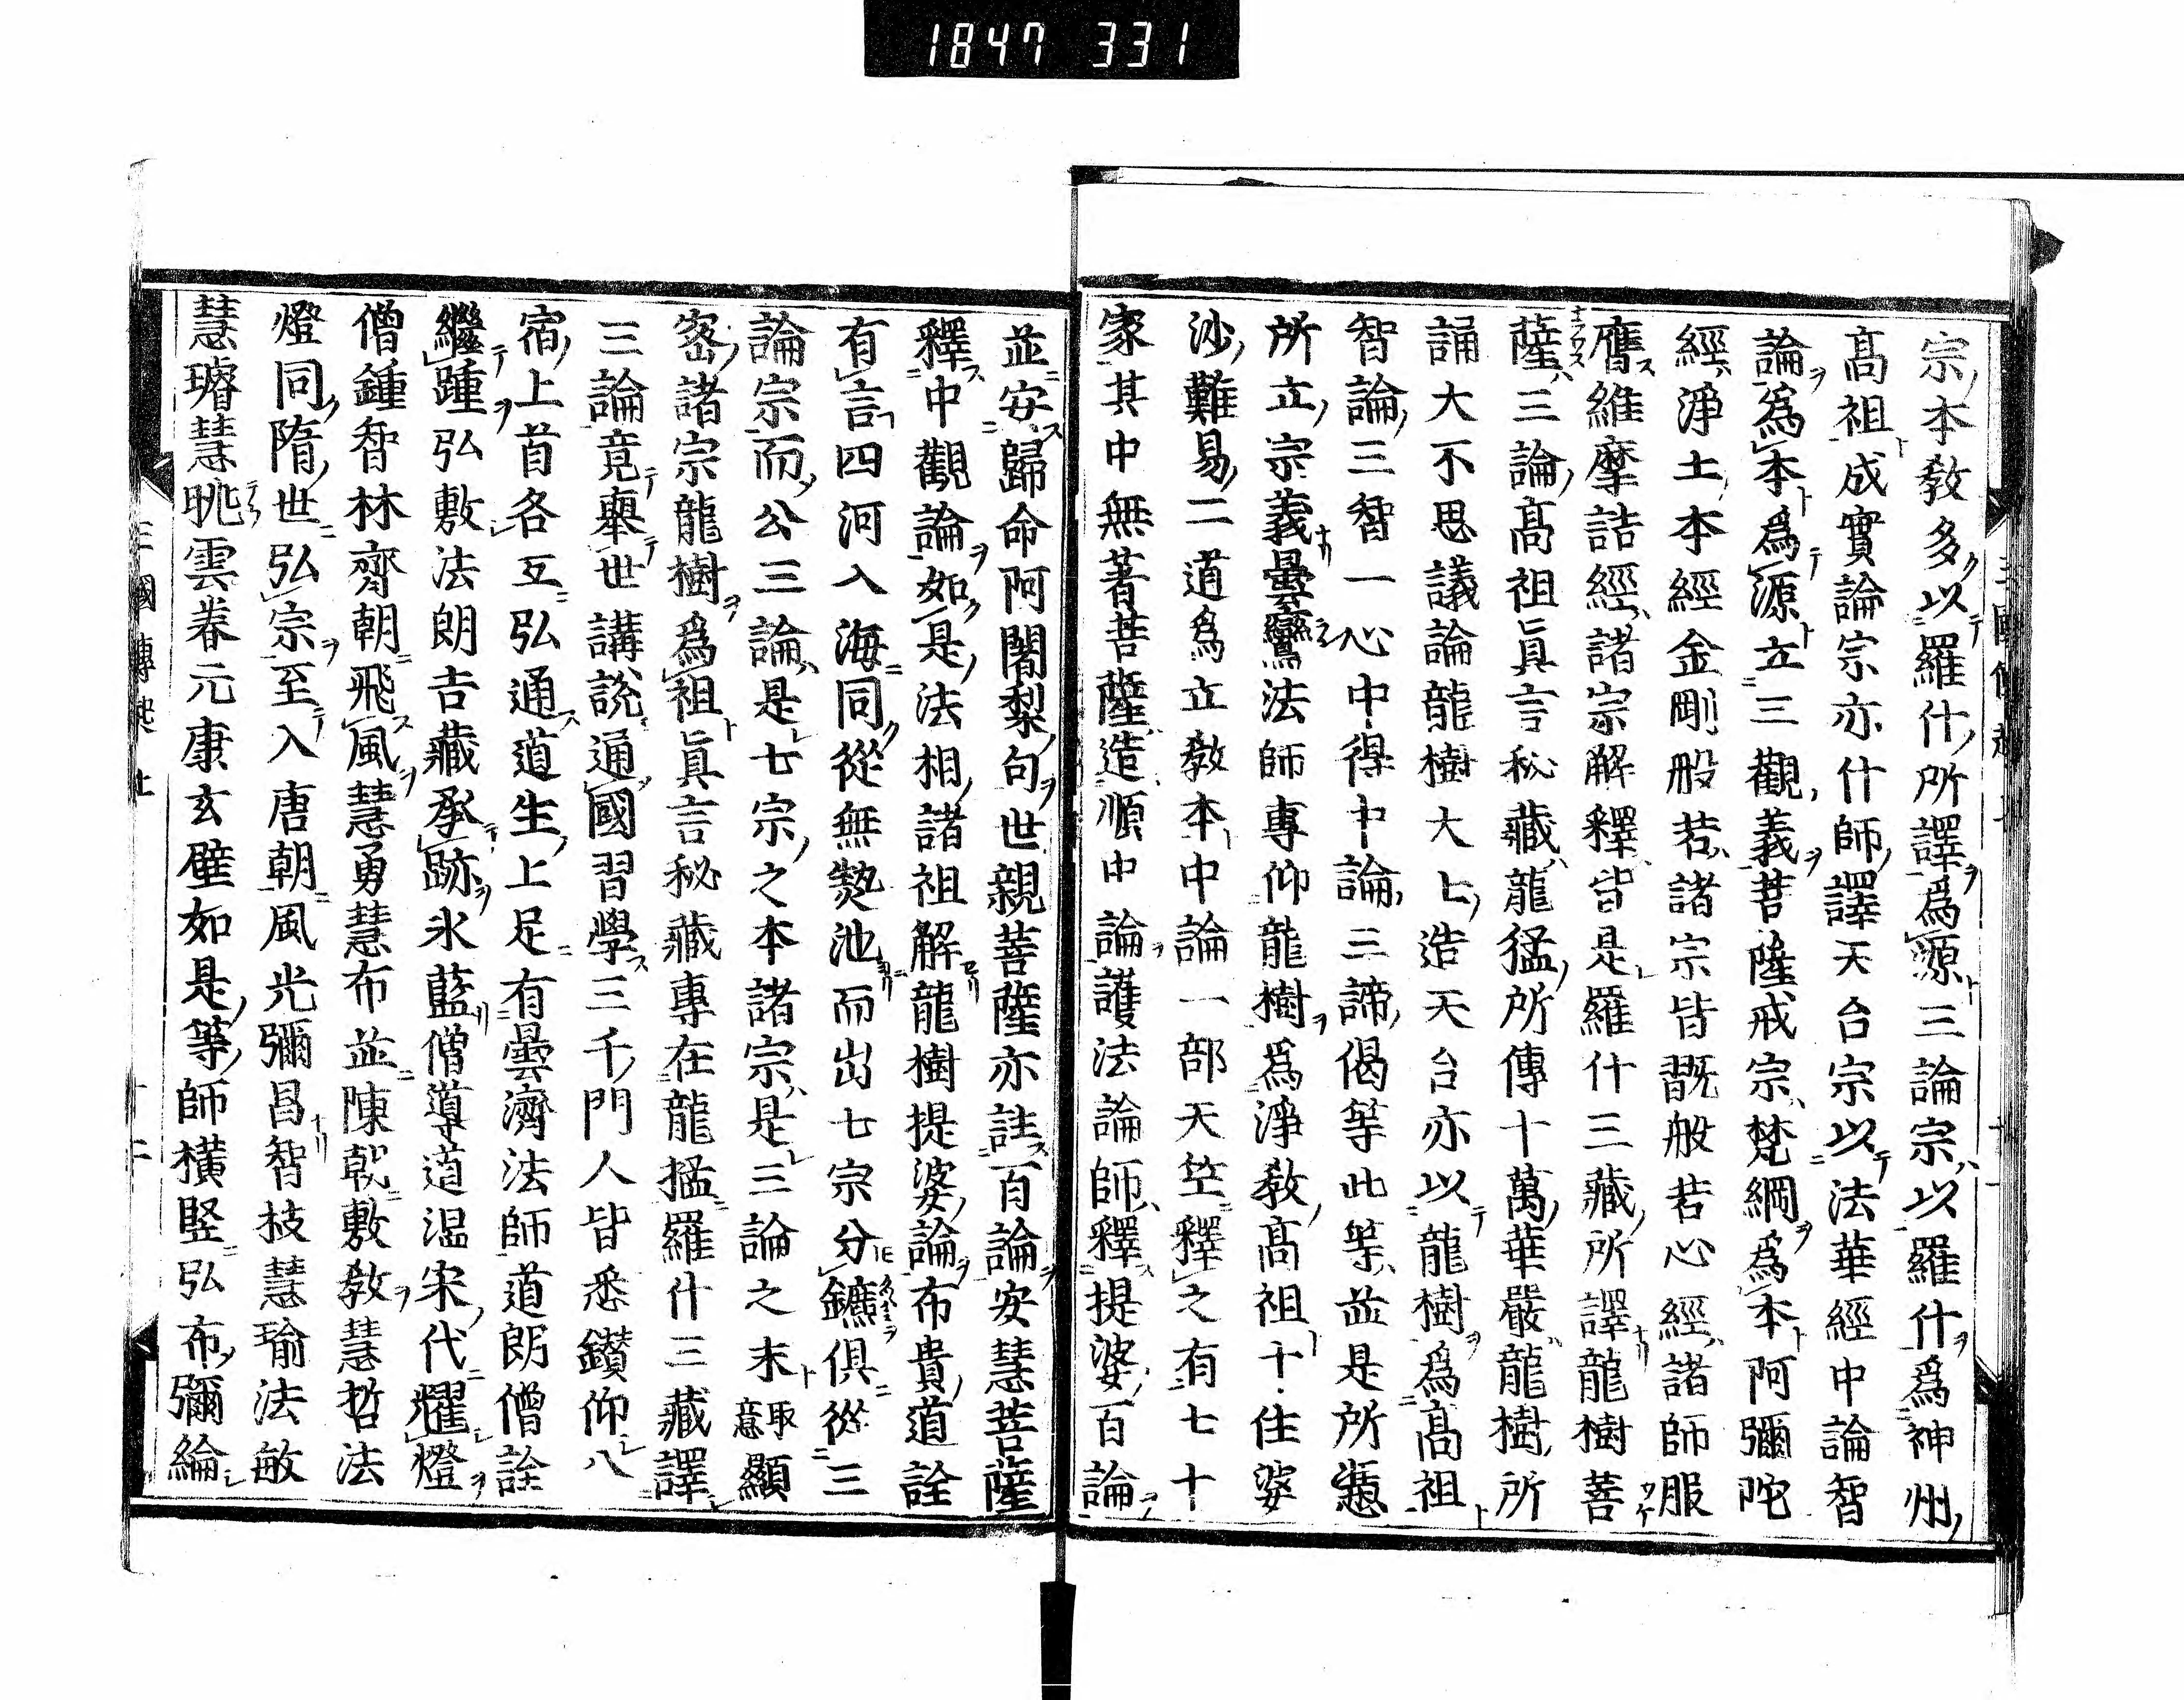 1847 331
宗本教多以羅什所譯爲源三論宗以羅什爲神州
高祖成實論宗亦什師譯天台宗以法華經中論智
論爲本爲源立三觀義菩薩戒宗梵網爲本阿彌陀
經淨土本經金剛般若諸宗皆翫般若心經諸師服
膺維摩詰經諸宗解釋皆是羅什三藏所譯龍樹菩
薩三論高祖眞言秘藏龍猛所傳十萬華嚴龍樹所
誦大不思議論龍樹大士造天台亦以龍樹爲高祖
智論三智一心中得中論三諦偈等此等並是所憑
所立宗義曇鸞法師專仰龍樹爲淨教高祖十住婆
沙難易二道爲立教本中論一部天竺釋之有七十
家其中無著菩薩造順中論護法論師釋提婆百論
並安歸命阿闍梨句世親菩薩亦註百論安慧菩薩
釋中觀論如是法相諸祖解龍樹提婆論布貴道詮
有言四河入海同從無熱池而出七宗分鑣俱從三
論宗而公三論是七宗之本諸宗是三論之末取意顯
密諸宗龍樹爲祖眞言秘藏專在龍猛羅什三藏譯
三論竟舉世講說通國習學三千門人皆悉鑚仰八
宿上首各互弘通道生上足有曇濟法師道朗僧詮
繼踵弘敷法朗吉藏承跡氷藍僧導道温宋代耀燈
僧鍾智林齊朝飛風慧勇慧布並陳乾敷教慧哲法
燈同隋世弘宗至入唐朝風光彌昌智枝慧瑜法敏
慧璿慧眺雲眷元康玄壁如是等師橫竪弘布彌綸
三國傳起上 十二